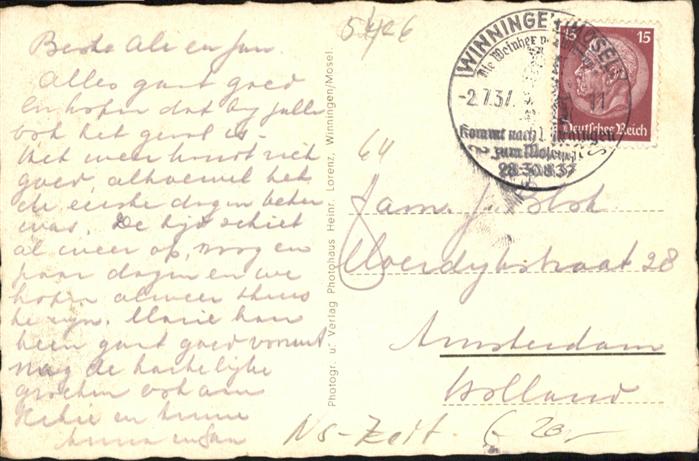 Beste Ale en Jan
Alles gaat goed
En hopen dat bij jullie
ook het geval is.
Het weer houdt zich
goed, alhoewel het
de eerste dagen beter
was. De tijd schiet
al weer op, nog en
paar dagen en we
hopen alweer thuis
te zijn. Marie kan
heen gaat goed vooruit
nog de hartelijke
groeten ook aan
en
Anna en Jan
5426
64
Photogr. u. Verlag Photohaus Heinr. Lorenz, Winningen/Mosel.
WINNINGEN (MOSEL)
Die
-2.7.37.-11
Kommt nach Winningen
zum
28.-30.8.37
15 15
Deutsches Reich
Fam. J. Blok
Moerdijkstraat 28
Amsterdam
Holland
NS-Zeit. 20.-